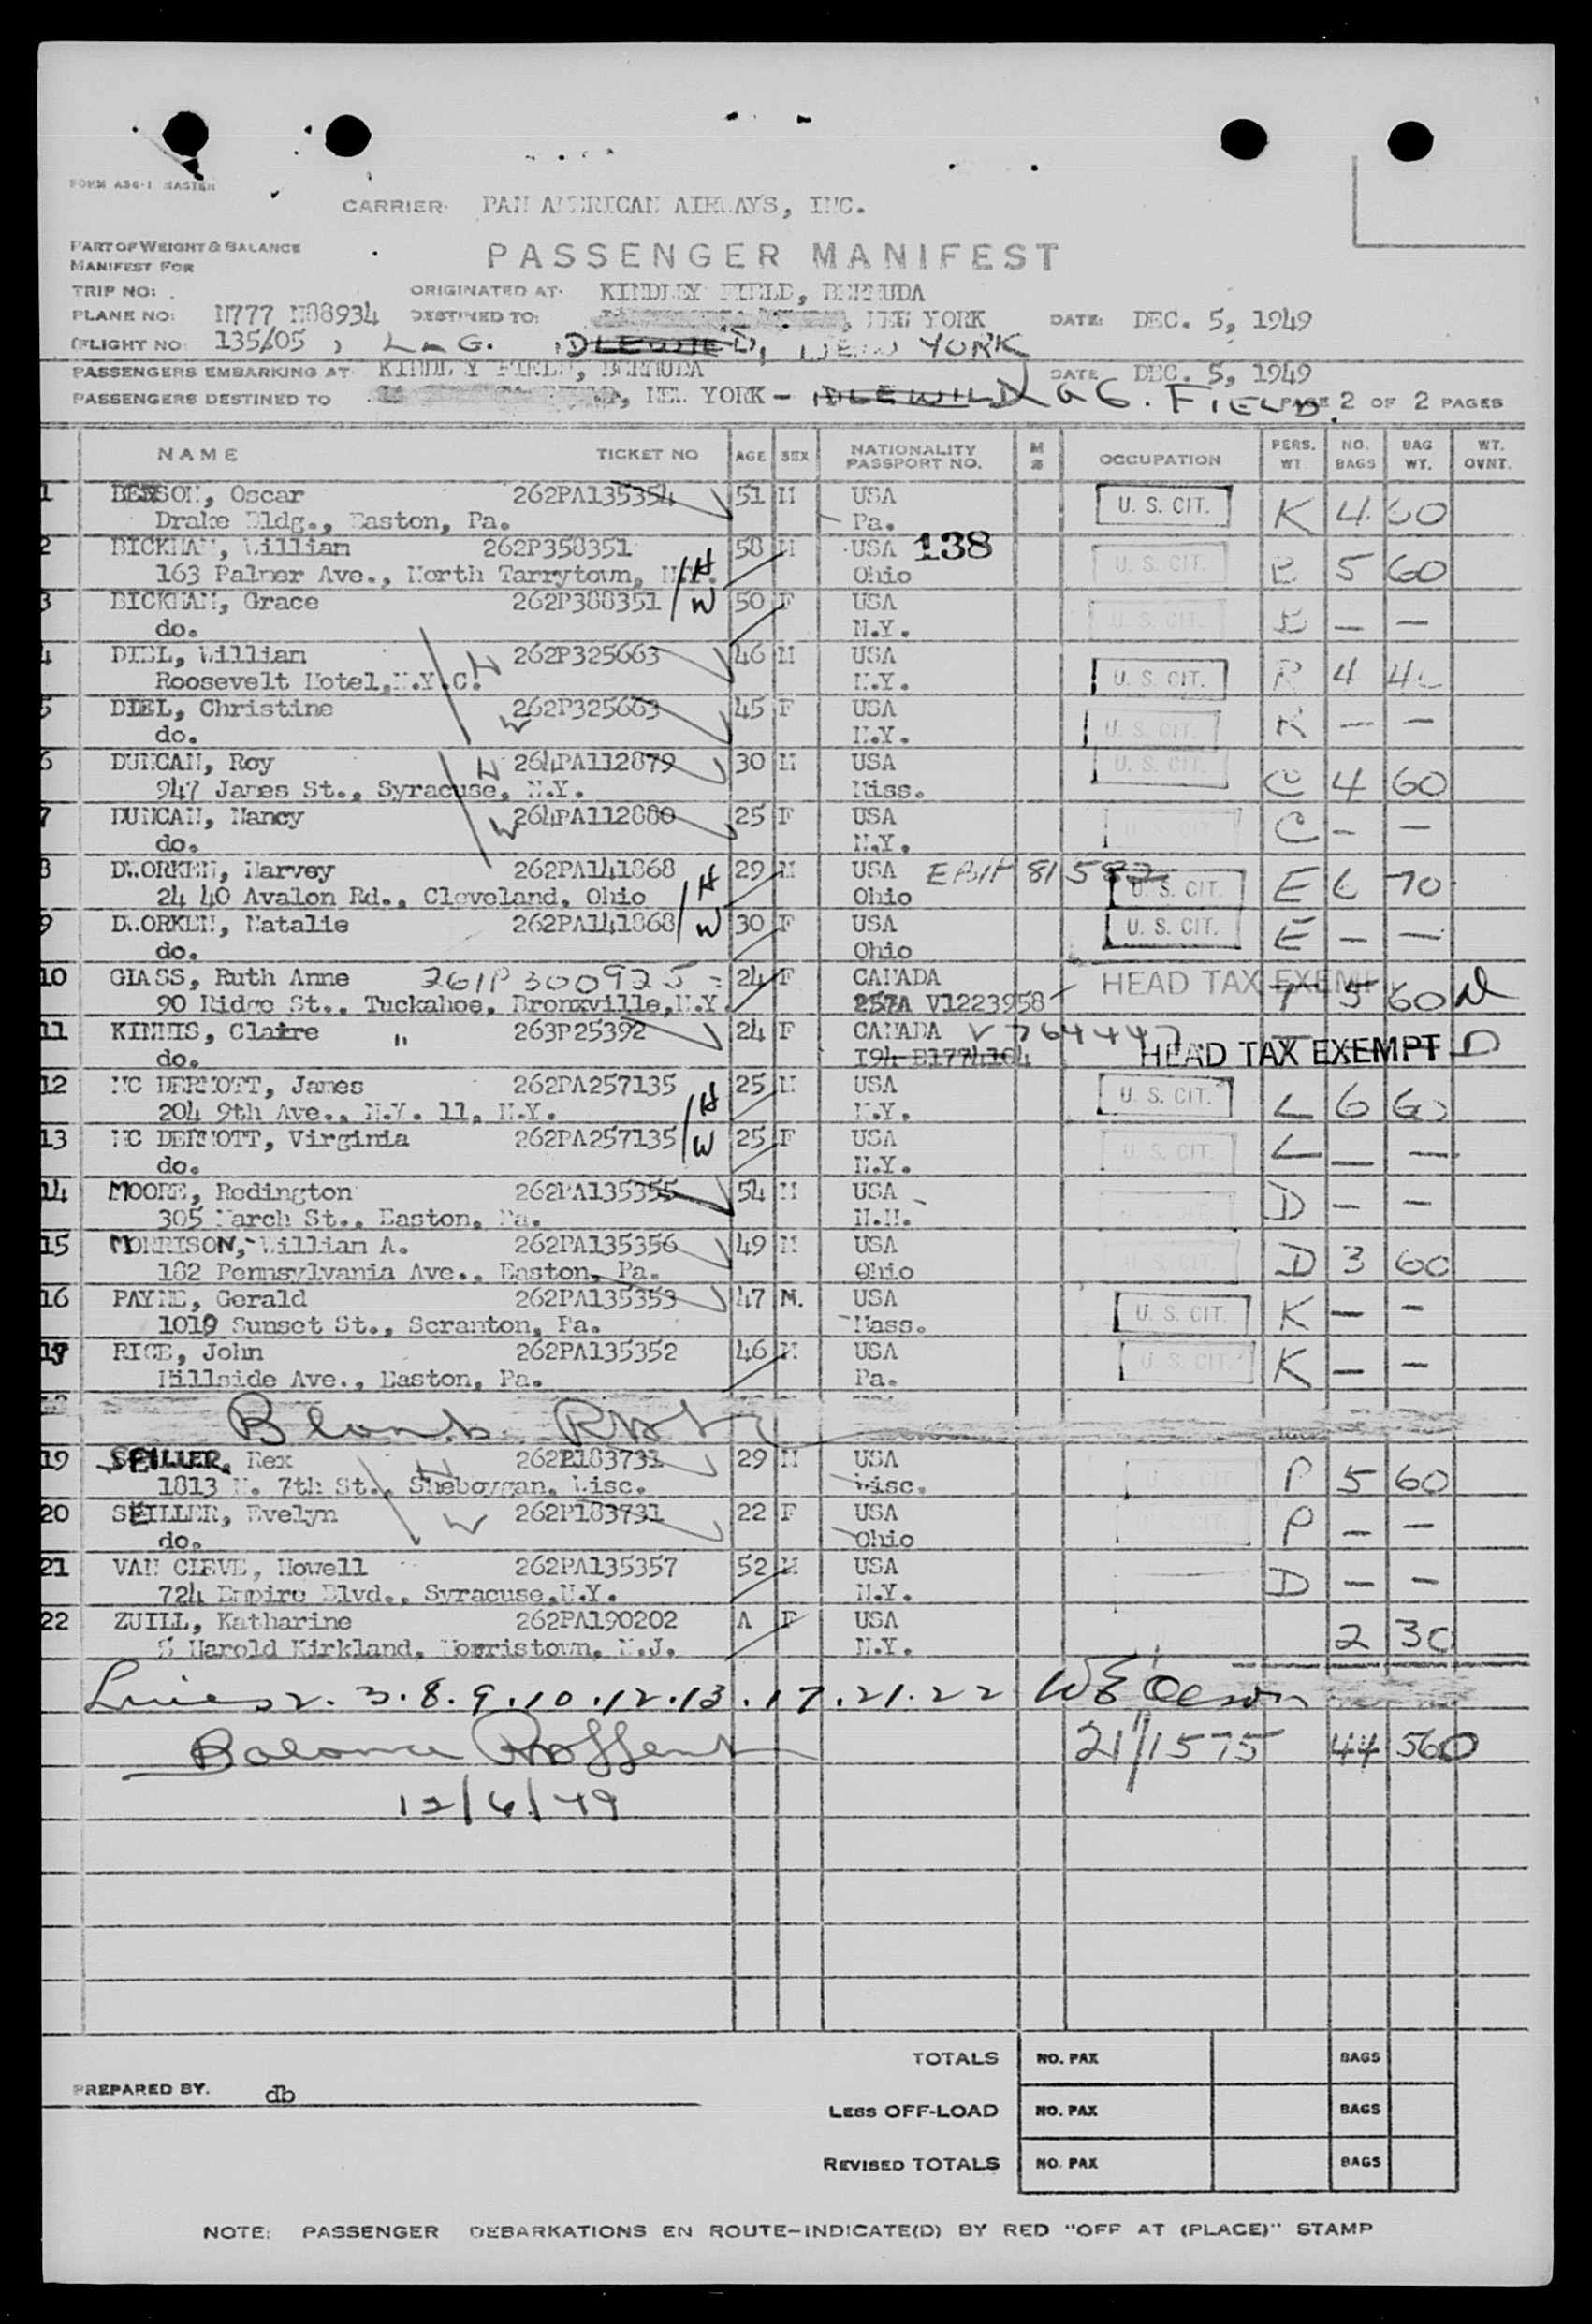 FORM A36-1 MASTER
CARRIER: PAN AMERICAN AIRWAYS, INC.
PART OF WEIGHT & BALANCE
MANIFEST FOR
PASSENGER MANIFEST
TRIP NO:
ORIGINATED AT: KINDLEY FIELD, BERMUDA
PLANE NO: N777 N88934 DESTINED TO: , NEW YORK DATE: DEC. 5, 1949
(FLIGHT NO 135/05 ) L G. IDLEWILD, NEW YORK
PASSENGERS EMBARKING AT KINDLEY FIELD, BERMUDA DATE DEC. 5, 1949
PASSENGERS DESTINED TO , NEW YORK - IDLEWILD G. FIELD. PAGE 2 OF 2 PAGES
NAME TICKET NO AGE SEX NATIONALITY PASSPORT NO. M S OCCUPATION PERS. WT NO. BAGS BAG WT. WT. OVNT.
1 DENSON, Oscar 262PA135354 51 M USA U. S. CIT. K 4 60
Drake Bldg., Easton, Pa. Pa.
2 BICKHAM, William 262P358351 58 M USA 138 U. S. CIT. B 5 60
163 Palmer Ave., North Tarrytown, N.Y. H Ohio
3 BICKHAM, Grace 262P388351 W 50 F USA U. S. CIT. B — —
do. N.Y.
4 DIEL, William H 262P325663 46 M USA U. S. CIT. R 4 40
Roosevelt Hotel, N.Y.C. N.Y.
5 DIEL, Christine W 262P325663 45 F USA U. S. CIT. R — —
do. N.Y.
6 DUNCAN, Roy H 264PA112879 30 M USA U. S. CIT. C 4 60
947 James St., Syracuse, N.Y. Miss.
7 DUNCAN, Nancy W 264PA112880 25 F USA U. S. CIT. C — —
do. N.Y.
8 DWORKEN, Harvey 262PA141868 H 29 M USA U. S. CIT. E 6 70
24 40 Avalon Rd., Cleveland, Ohio Ohio
9 DWORKEN, Natalie 262PA141868 W 30 F USA U. S. CIT. E — —
do. Ohio
10 GLASS, Ruth Anne 261P300925 24 F CANADA HEAD TAX EXEMPT T 5 60
90 Ridge St., Tuckahoe, Bronxville, N.Y. 257A V1223958
11 KINNIS, Claire " 263P25392 24 F CANADA V764447 HEAD TAX EXEMPT D
do. I94 B1774104
12 MC DERMOTT, James 262PA257135 H 25 M USA U. S. CIT. L 6 60
204 9th Ave., N.Y. 11, N.Y. N.Y.
13 MC DERMOTT, Virginia 262PA257135 W 25 F USA U. S. CIT. L — —
do. N.Y.
14 MOORE, Redington 262PA135355 54 M USA D — —
305 March St., Easton, Pa. N.H.
15 MORRISON, William A. 262PA135356 49 M USA U. S. CIT. D 3 60
182 Pennsylvania Ave., Easton, Pa. Ohio
16 PAYNE, Gerald 262PA135353 47 M. USA U. S. CIT. K — —
1019 Sunset St., Scranton, Pa. Mass.
17 RICE, John 262PA135352 46 M USA U. S. CIT. K — —
Hillside Ave., Easton, Pa. Pa.
Blank
19 SEILLER, Rex H 262P183731 29 M USA U. S. CIT. P 5 60
1813 N. 7th St., Sheboygan, Wisc. Wisc.
20 SEILLER, Evelyn W 262P183731 22 F USA U. S. CIT. P — —
do. Ohio
21 VAN CLEVE, Howell 262PA135357 52 M USA D — —
724 Empire Blvd., Syracuse, N.Y. N.Y.
22 ZUILL, Katharine 262PA190202 A F USA 2 30
% Harold Kirkland, Morristown, N.J. N.Y.
Lines 2. 3. 8. 9. 10. 12. 13. 17. 21. 22
Balance 21/1575 44 560
12/6/49
TOTALS NO. PAX BAGS
PREPARED BY. db
LESS OFF-LOAD NO. PAX BAGS
REVISED TOTALS NO. PAX BAGS
NOTE: PASSENGER DEBARKATIONS EN ROUTE-INDICATE(D) BY RED "OFF AT (PLACE)" STAMP